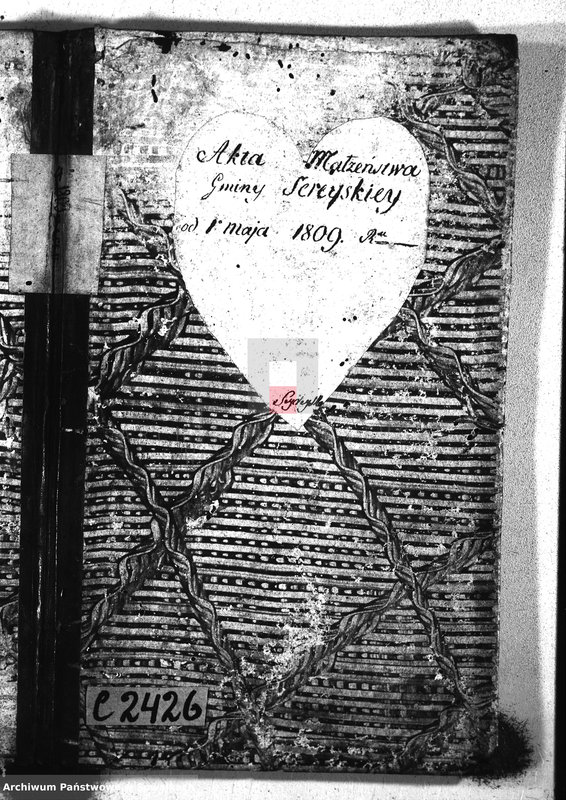 Akta Małżeństwa
Gminy Sereyskiey
od 1º maja 1809. Ru
C 2426
Archiwum Państwow